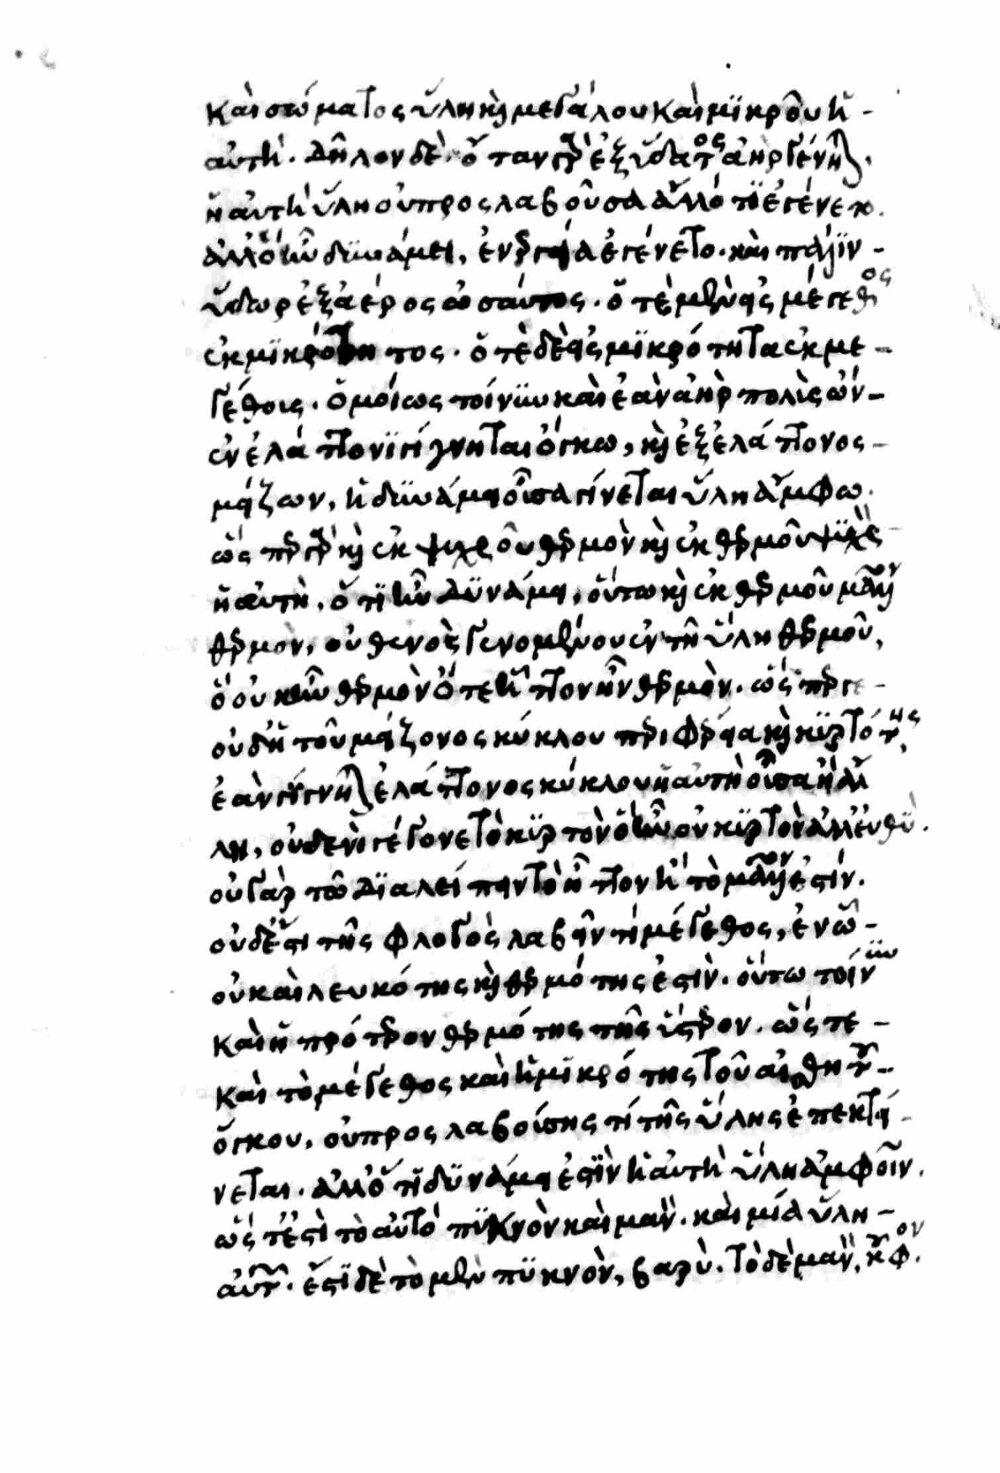 καὶ σώματος ὕλη κỳ μεγάλου καὶ μικροῦ ἡ -
αὐτή. δῆλον δέ. ὅταν γὰρ ἐξ ὕδατος ἀὴρ γένηται.
ἡ αὐτὴ ὕλη οὐ προσλαβοῦσα ἄλλό τι ἐγένετο.
ἀλλ' ὃ ἦν δυνάμει, ἐνεργείᾳ ἐγένετο. καὶ πάλιν -
ὕδωρ ἐξ ἀέρος ὡσαύτως. ὁτὲ μὲν εἰς μέγεθος
ἐκ μικρότητος. ὁτὲ δὲ εἰς μικρότητα ἐκ με -
γέθους. ὁμοίως τοίνυν καὶ ἐὰν ἀὴρ πολὺς ὢν -
ἐν ἐλάττονι γίγνηται ὄγκῳ, καὶ ἐξ ἐλάττονος -
μείζων, ἡ δυνάμει οὖσα γίνεται ὕλη ἄμφω.
ὥσπερ γὰρ καὶ ἐκ ψυχροῦ θερμὸν καὶ ἐκ θερμοῦ ψυχρὸν
ἡ αὐτὴ, ὅτι ἦν δυνάμει, οὕτω καὶ ἐκ θερμοῦ μᾶλλον
θερμὸν, οὐθενὸς γενομένου ἐν τῇ ὕλῃ θερμοῦ,
ὃ οὐκ ἦν θερμὸν ὅτε ἧττον ἦν θερμὸν. ὥσπερ γε -
οὐδ' ἡ τοῦ μείζονος κύκλου περιφέρεια καὶ κυρτότης,
ἐὰν γίγνηται ἐλάττονος κύκλου ἡ αὐτὴ οὖσα ἢ ἄλ
λη, οὐδενὶ γέγονε τὸ κυρτὸν ὃ ἦν οὐ κυρτὸν ἀλλ' εὐθύ.
οὐ γὰρ τῷ διαλείπειν τὸ ἧττον ἢ τὸ μᾶλλον ἐστίν.
οὐδ' ἔστι τῆς φλογὸς λαβεῖν τι μέγεθος, ἐν ᾧ -
οὐ καὶ λευκότης καὶ θερμότης ἐστὶν. οὕτω τοίνυν
καὶ ἡ πρότερον θερμότης τῆς ὕστερον. ὥστε -
καὶ τὸ μέγεθος καὶ ἡ μικρότης τοῦ αἰσθητοῦ -
ὄγκου, οὐ προσλαβούσης τι τῆς ὕλης ἐπεκτεί -
νεται. ἀλλ' ὅτι δυνάμει ἐστὶν ἡ αὐτὴ ὕλη ἀμφοῖν.
ὥστ' ἐστὶ τὸ αὐτὸ πυκνὸν καὶ μανόν. καὶ μία ὕλη -
αὐτῶν. ἔστι δὲ τὸ μὲν πυκνὸν, βαρὺ. τὸ δὲ μανὸν, κοῦφον.